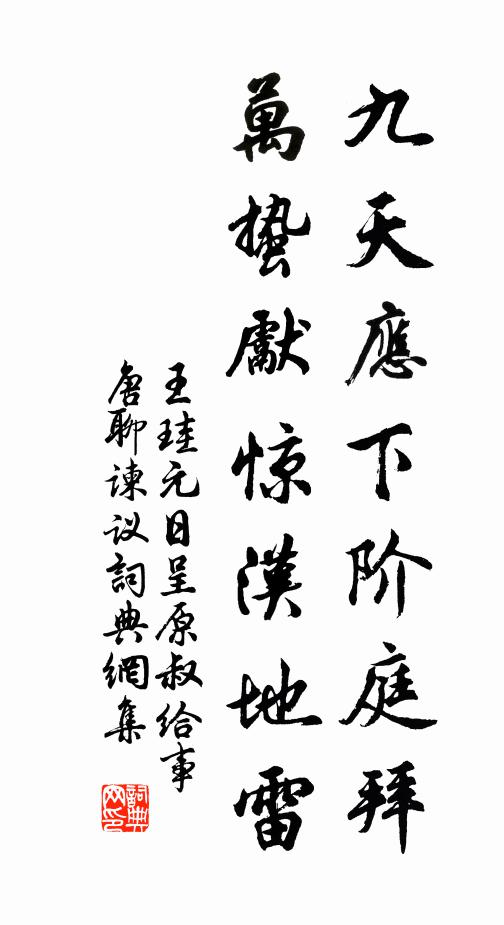 九天應下阶庭拜
萬蛰獻惊漢地雷
王珪元日呈原叔给事
唐聊諫议詞典網集
詞典网印